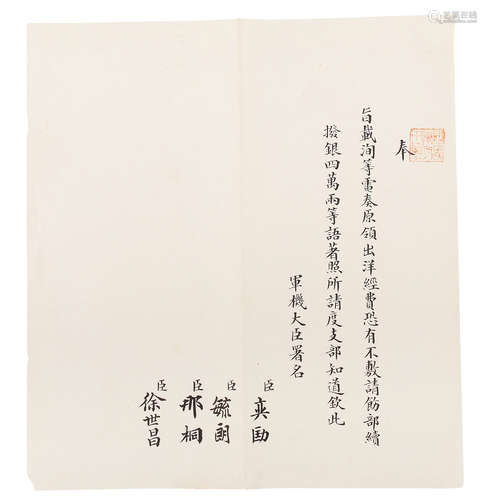 奉
旨載洵等電奏原領出洋經費恐有不敷請飭部續
撥銀四萬兩等語著照所請度支部知道欽此
軍機大臣署名
臣奕劻
臣毓朗
臣那桐
臣徐世昌